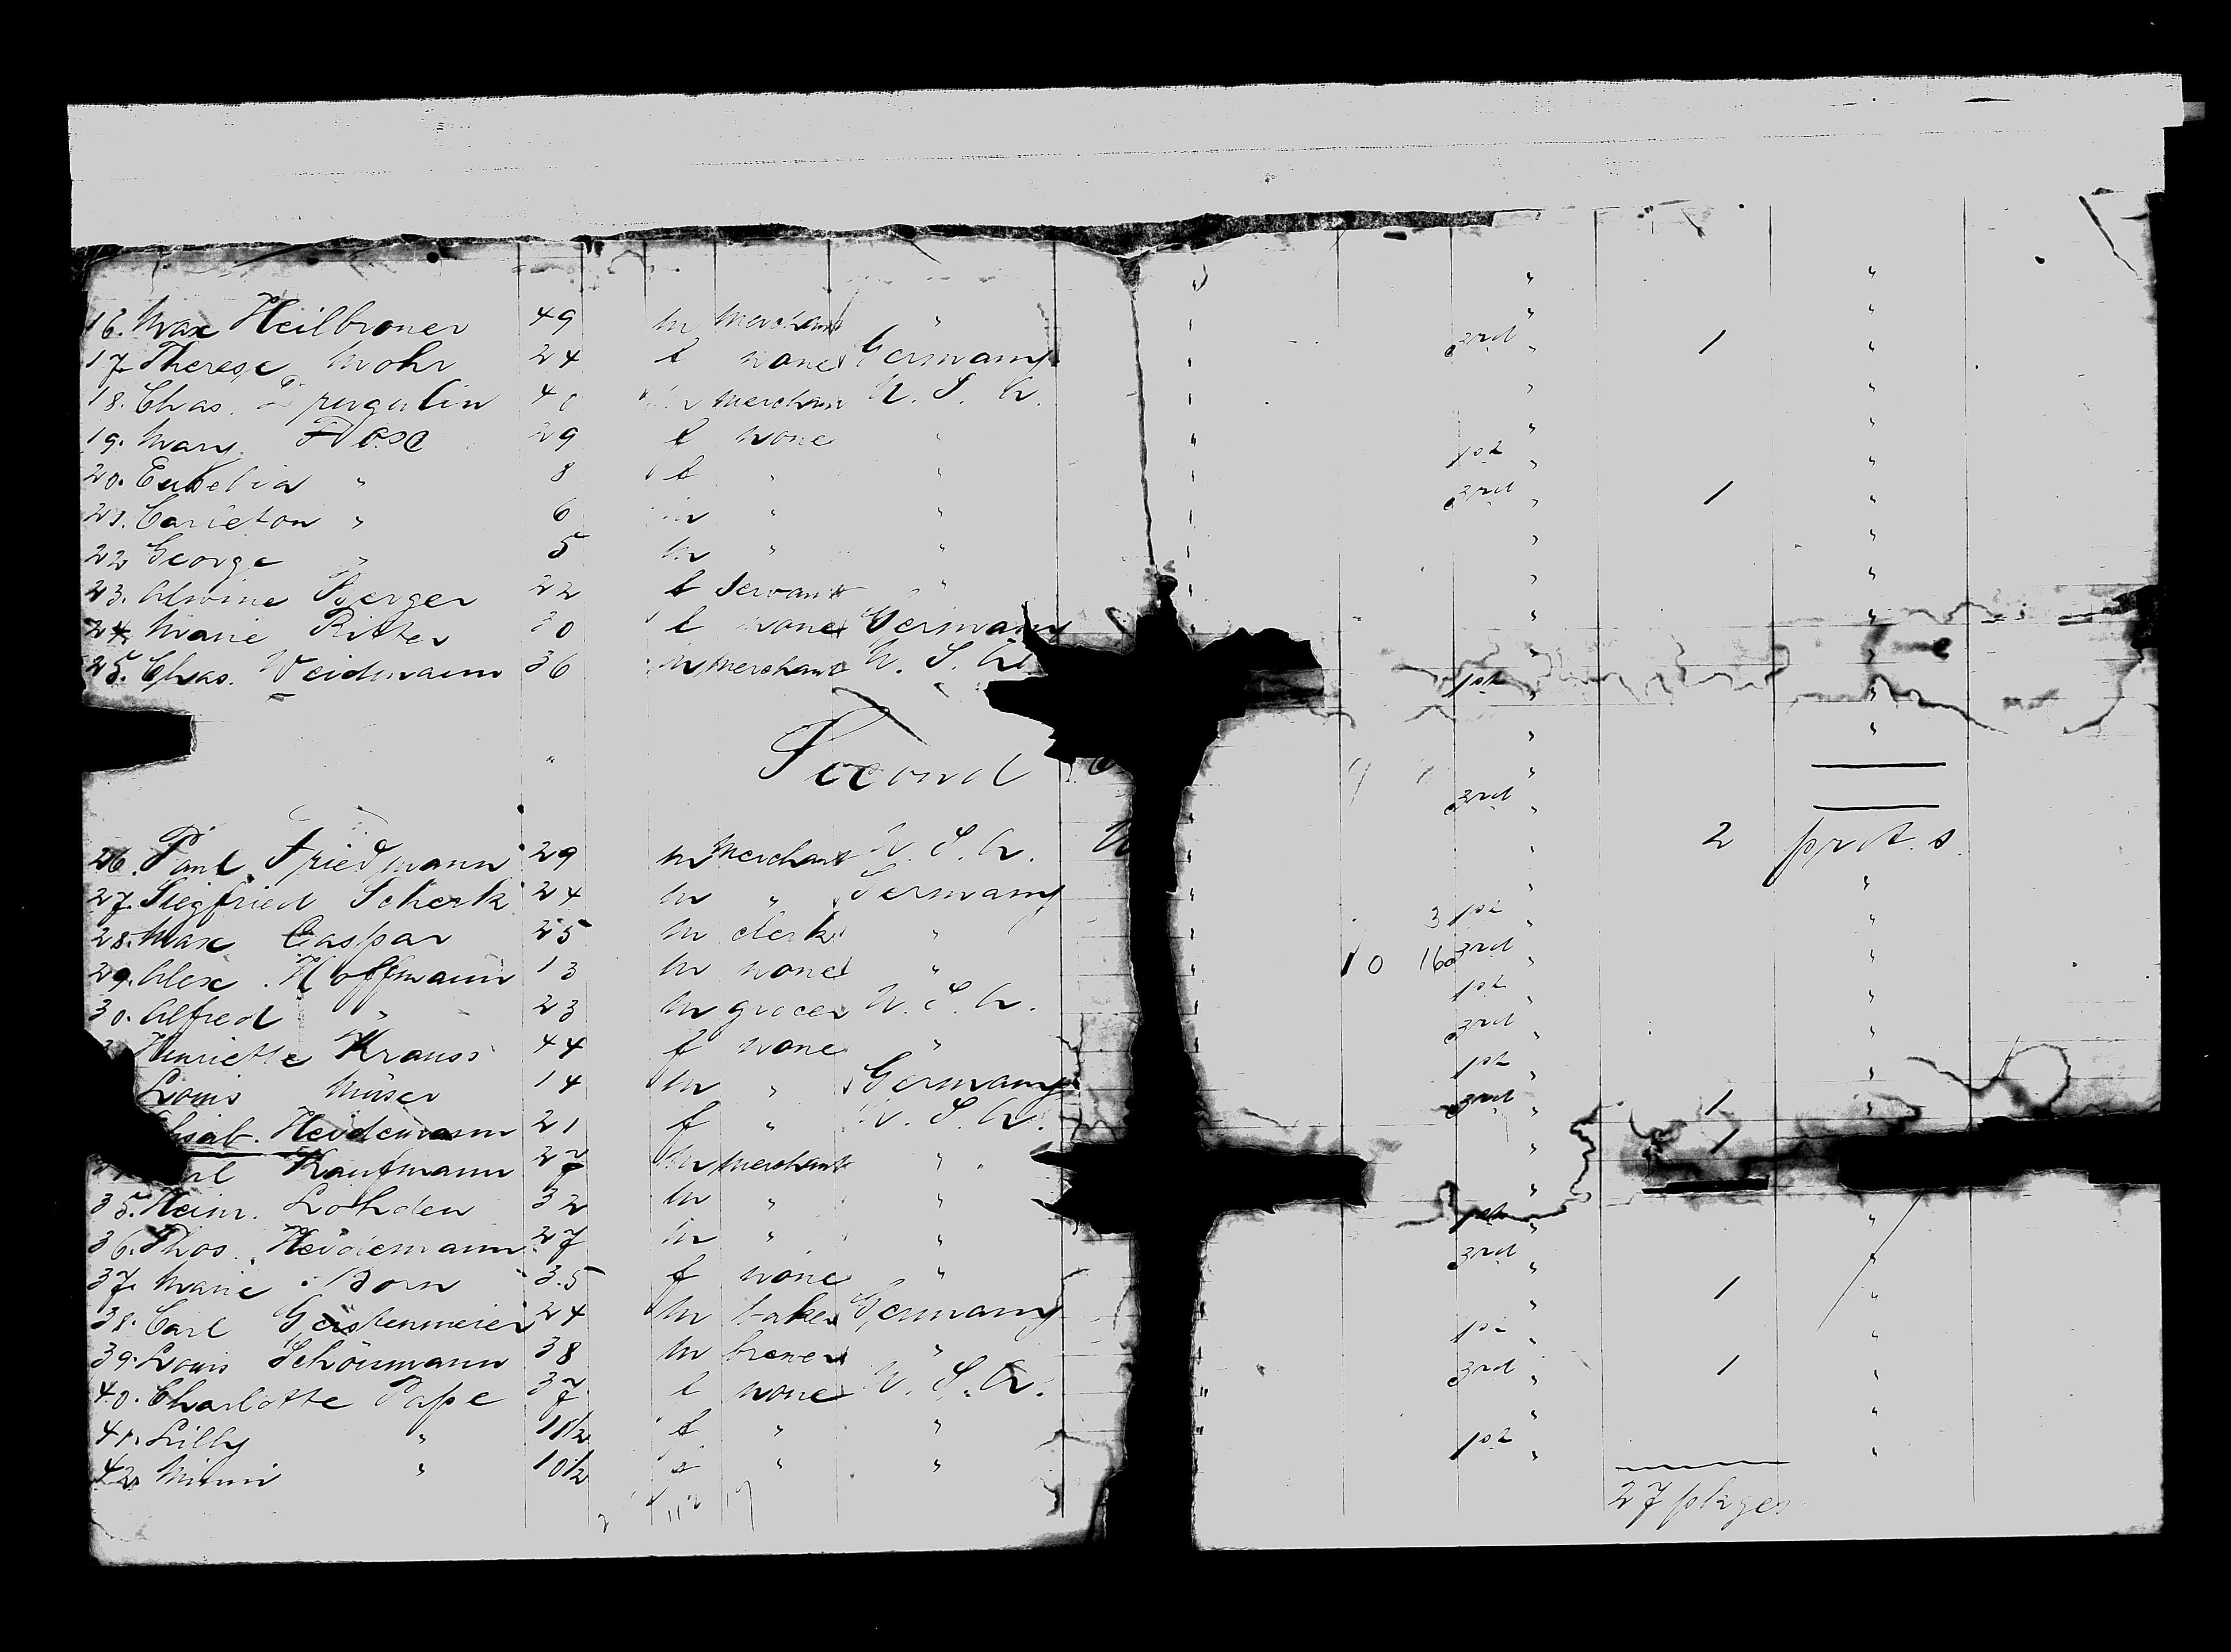 16. Max Heilbroner 49 m merchant "
17. Therese Mohr 24 f none Germany
18. Chas. Drugulin 40 m merchant U. S. A.
19. Mary Rose 29 f none "
20. Eusebia " 8 f " "
21. Carleton " 6 m " "
22 George " 5 m " "
23. Alwine Berger 22 f servant "
24. Marie Ritter 30 f none Germany
25. Chas. Weidmann 36 m merchant U. S. A.
Second
26. Paul Friedmann 29 m merchant U. S. A. U
27. Siegfried Scherk 24 m " Germany
28. Max Caspar 25 m clerk "
29. Alex. Hoffmann 13 m none "
30. Alfred " 23 m grocer U. S. A.
Henriette Krauss 44 f none "
Louis Müser 14 m " Germany
Heidemann 21 f " U. S. A.
Kaufmann 27 m merchant "
35. Heinr. Lohden 32 m " "
36. Thos. Heidemann 27 m " "
37. Marie Born 35 f none "
38. Carl Gerstenmeier 24 m baker Germany
39. Louis Schönmann 38 m brewer "
40. Charlotte Pape 37 f none U. S. A.
41. Lilly " 11½ f " "
42. Minni " 10½ f " "
" "
" "
3rd " 1 "
" "
" "
1st " "
3rd " 1 "
" "
" "
" "
" "
1st " "
" "
"
3rd "
" 2 prt. s.
" "
3 1st " "
10 16 3rd " "
1st " "
3rd " "
1st " "
3rd " 1 "
" 1
"
1st " "
3rd " "
" 1 "
1st " "
3rd " 1 "
" "
1st " "
27 pkges